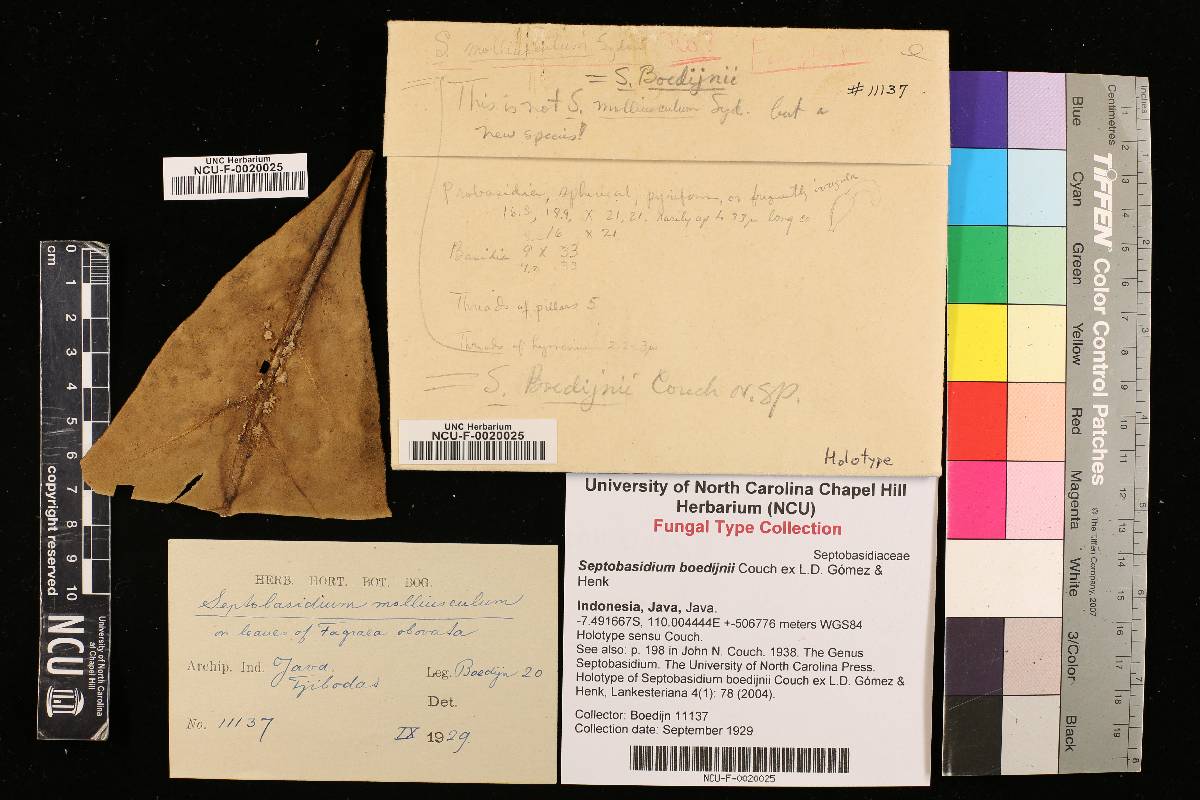 S. molliusculum Syd.
= S. Boedijnii
# 11137
This is not S. molliusculum Syd. but a
new species!
Probasidia, spherical, pyriform, or frequently irregular
18.8, 18.9, x 21, 21. rarely up to 33µ long
16 x 21
Basidia 9 x 33
Threads of pillars 5
Threads of hymenium
= S. Boedijnii Couch n. sp.
UNC Herbarium
NCU-F-0020025
Holotype
UNC Herbarium
NCU-F-0020025
cm
0 1 2 3 4 5 6 7 8 9 10
copyright reserved
NCU
University of North Carolina
at Chapel Hill
Herbarium
HERB. HORT. BOT. BOG.
Septobasidium molliusculum
on leaves of Fagraea obovata
Archip. Ind. Java.
Tjibodas
Leg. Boedijn 20
Det.
No. 11137
IX 1929.
University of North Carolina Chapel Hill
Herbarium (NCU)
Fungal Type Collection
Septobasidiaceae
Septobasidium boedijnii Couch ex L.D. Gómez &
Henk
Indonesia, Java, Java.
-7.491667S, 110.004444E +-506776 meters WGS84
Holotype sensu Couch.
See also: p. 198 in John N. Couch. 1938. The Genus
Septobasidium. The University of North Carolina Press.
Holotype of Septobasidium boedijnii Couch ex L.D. Gómez &
Henk, Lankesteriana 4(1): 78 (2004).
Collector: Boedijn 11137
Collection date: September 1929
NCU-F-0020025
Blue
Cyan
Green
Yellow
Red
Magenta
White
3/Color
Black
TIFFEN Color Control Patches
© The Tiffen Company, 2007
Centimetres
1 2 3 4 5 6 7 8 9 10 11 12 13 14 15 16 17 18 19
Inches
1 2 3 4 5 6 7 8